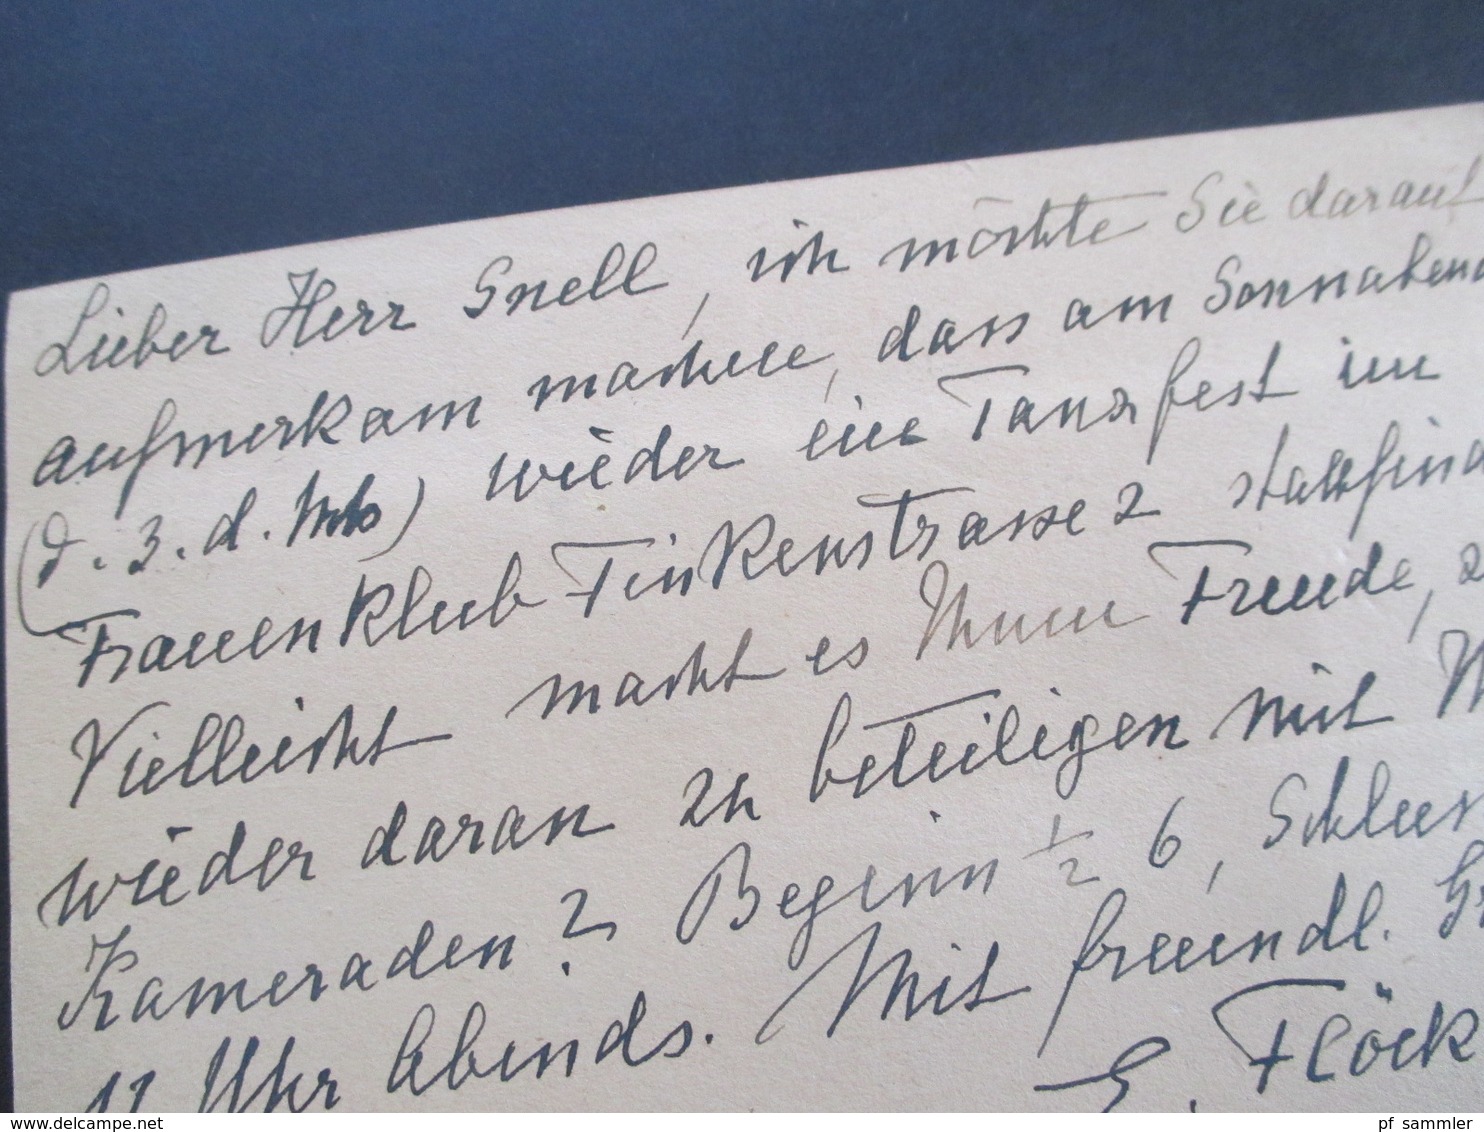 Lieber Herr Snell, ich möchte Sie darauf
aufmerksam machen, dass am Sonnabend
(d. 3. d. Mts) wieder ein Tanzfest im
Frauenklub Finkenstrasse 2 stattfind
Vielleicht macht es Ihnen Freude, z
wieder daran zu beteiligen mit
Kameraden? Beginn 1/2 6, Schluss
11 Uhr Abends. Mit freundl. Gr
E. Flöck
www.delcampe.net
pf_sammler